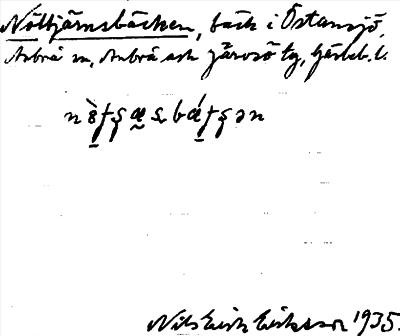 Nöttjärnsbäcken, bäck i Östansjö,
Arbrå sn, Arbrå och Järvsö tg, Gävleb. l.
Nils Erik Eriksson 1935.